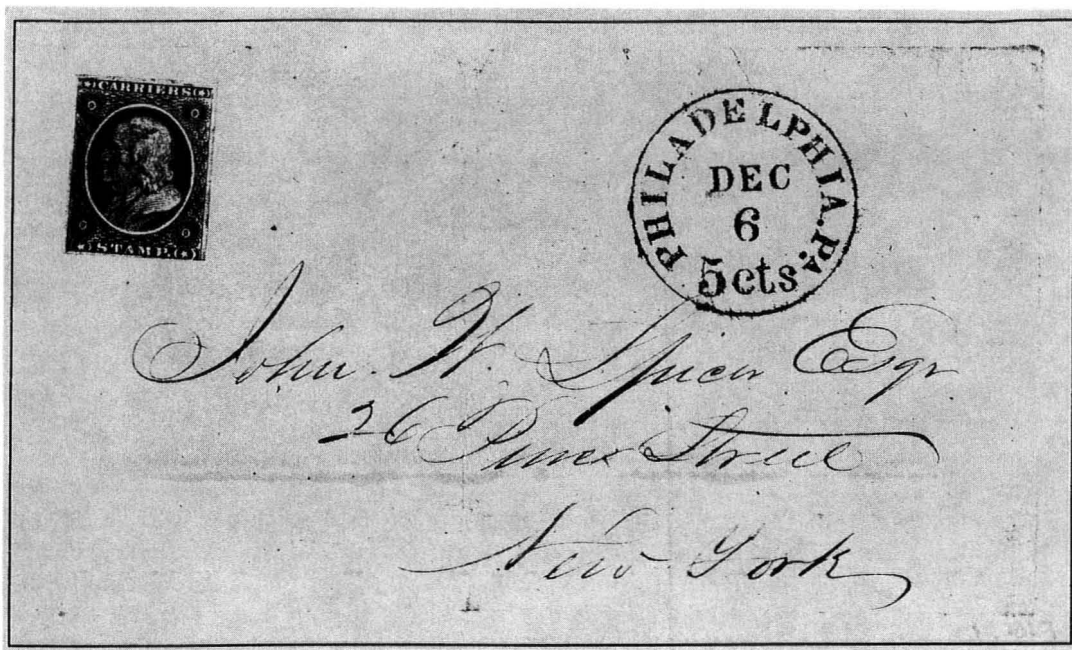 CARRIERS
STAMP.
PHILADELPHIA. Pa.
DEC
6
5cts
John. W. Spicer Esqr
26 Street
New York